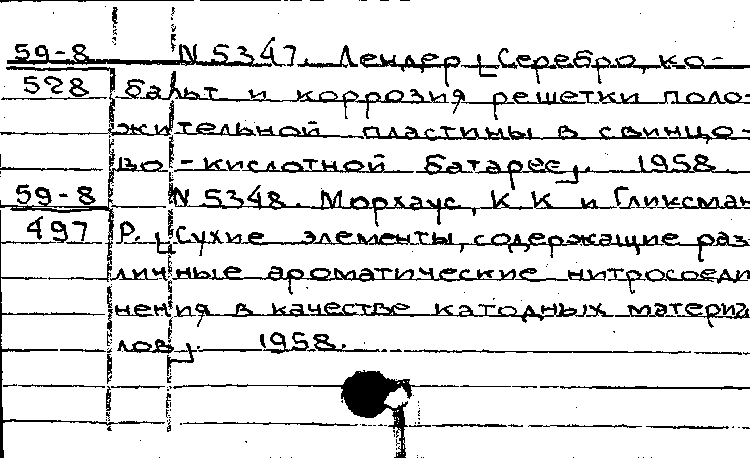 59-8 N 5347. Лендер [Серебро, ко-
528 бальт и коррозия решетки поло-
жительной пластины в свинцо-
во-кислотной батарее]. 1958
59-8 N 5348. Морхаус, К. К. и Гликсман
497 Р. [Сухие элементы, содержащие раз
личные ароматические нитросоеди
нения в качестве катодных материа
лов]. 1958.